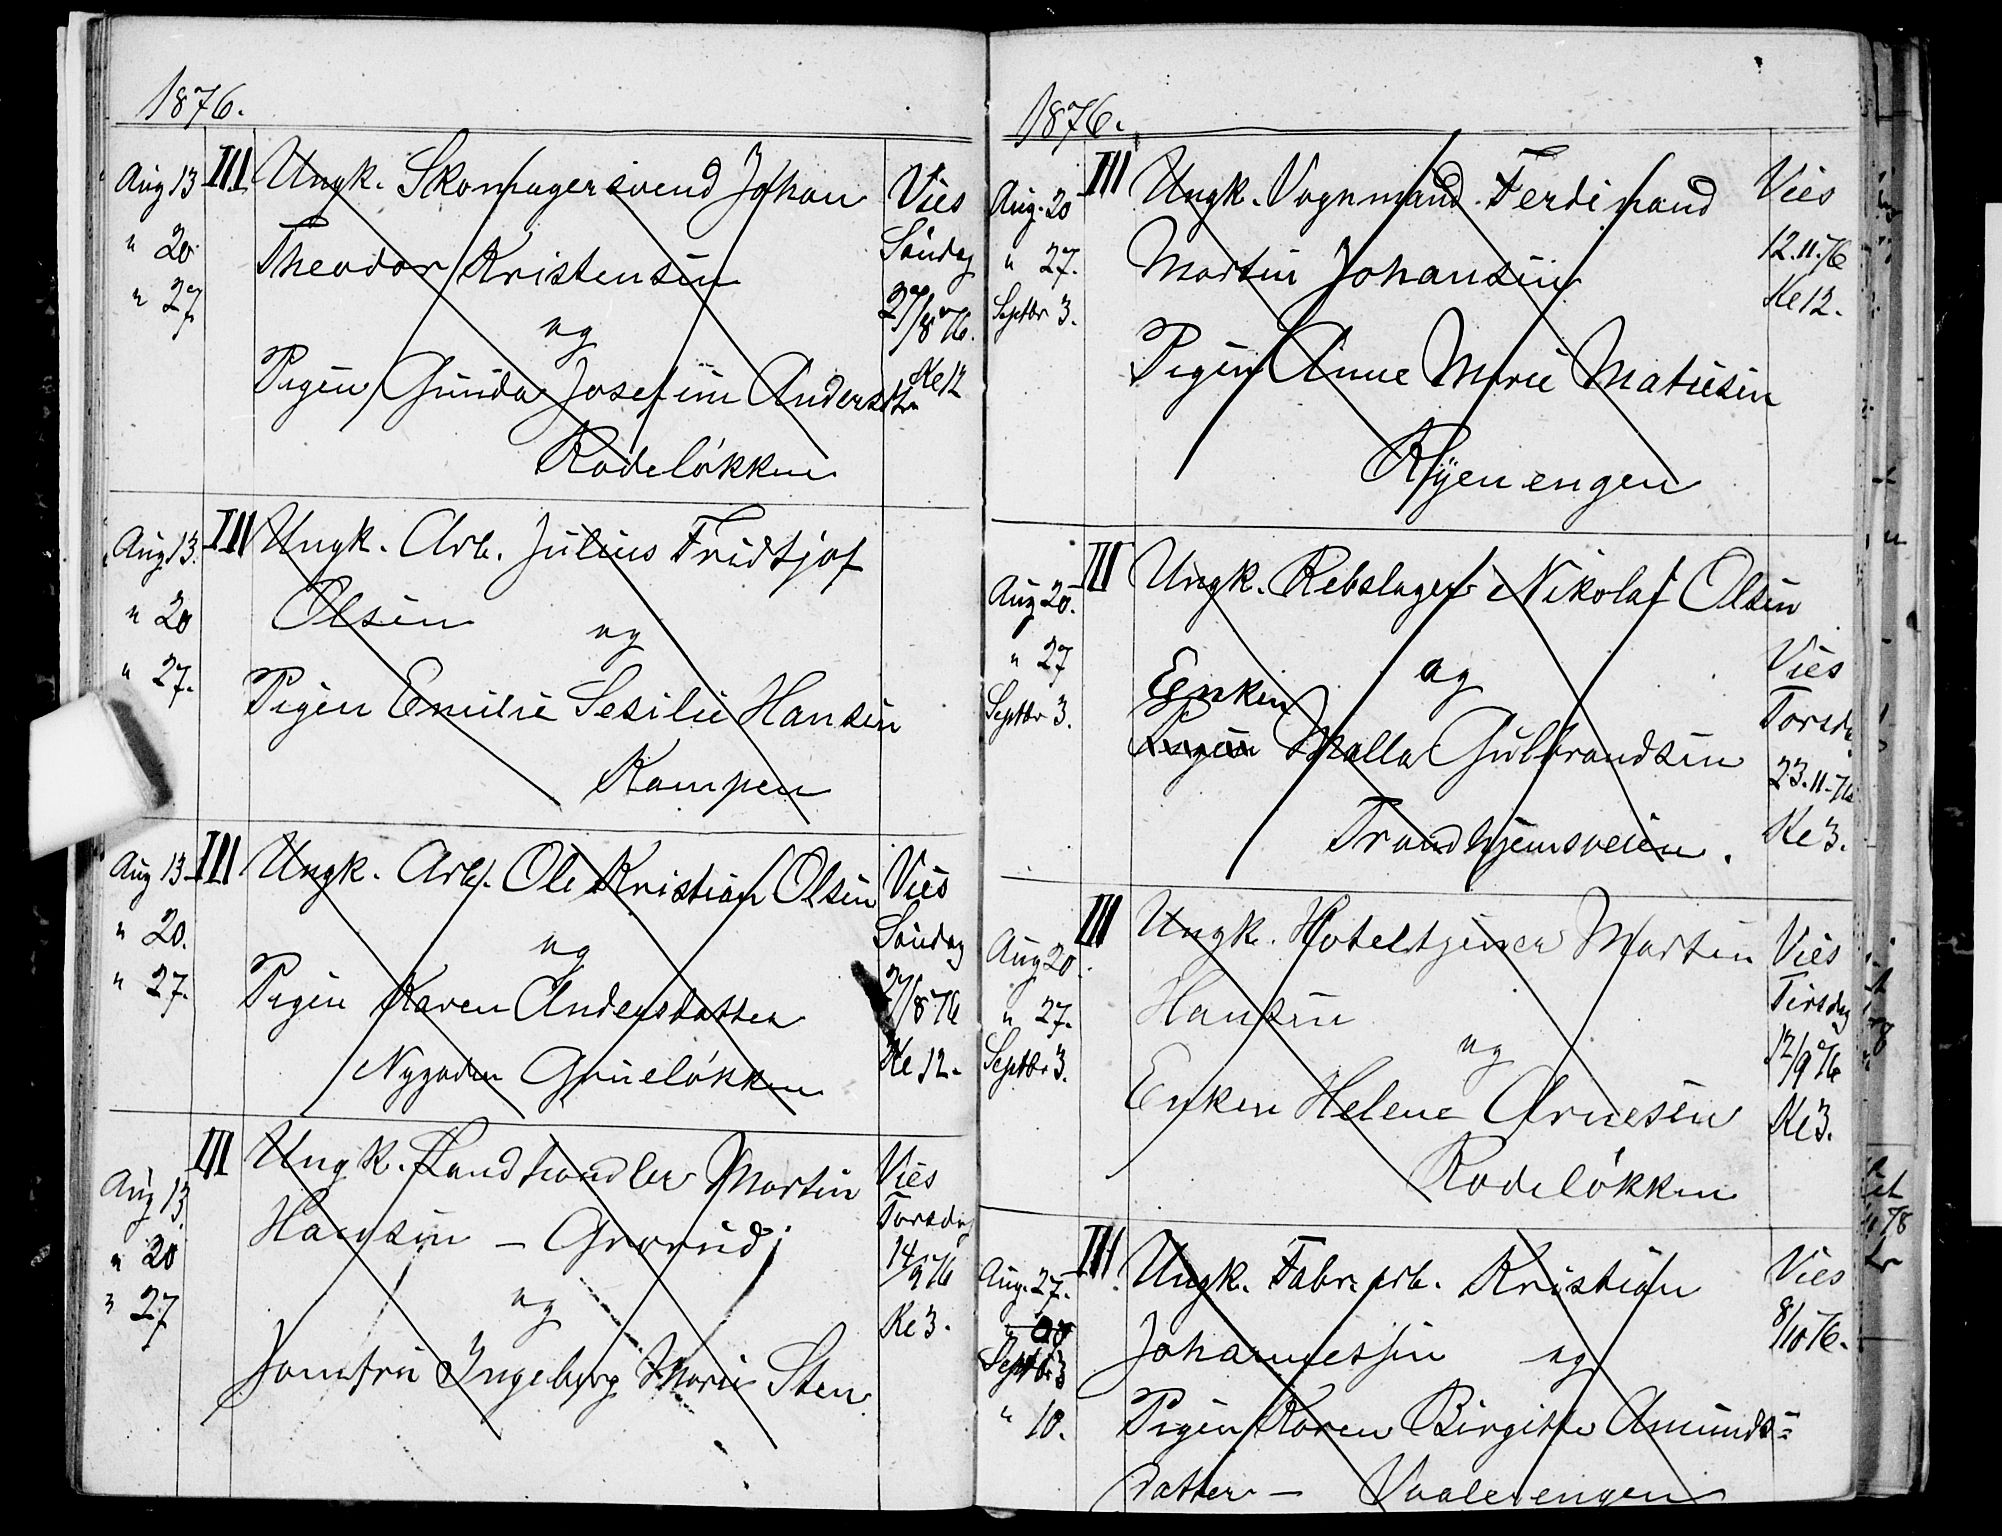 1876.
Aug 13 III Ungk. Skomagersvend Johan Vies
" 20 Theodor Kristensen Søndag
" 27 og 27/8 76.
Pigen Gunda Josefine Andersdtr Kl 12
Rodeløkken
Aug 13. III Ungk. Arb. Julius Fridtjof
" 20 Olsen og
" 27. Pigen Emilie Sesilie Hansen
Kampen
Aug 13 III Ungk. Arb. Ole Kristian Olsen Vies
" 20. og Søndag
" 27. Pigen Karen Andersdatter 27/8 76
Nygaden Grueløkken Kl 12.
Aug 13 III Ungk. Landhandler Martin Vies
" 20 Hansen – Grorud; Torsdag
" 27 og 14/9 76
Jomfru Ingeborg Marie Sten Kl 3.
1876.
Aug. 20 III Ungk. Vognmand Ferdinand Vies
" 27. Martin Johansen 12.11.76
Septbr 3. Kl 12.
Pigen Anne Marie Matiesen
Ryenengen
Aug 20. III Ungk. Rebslager Nikolai Olsen
" 27 og Vies
Septbr 3. Enken Torsda
Pigen Malla Gulbrandsen 23.11-76
Trondhjemsveien. Kl 3.
Aug 20. III Ungk. Hoteltjener Martin Vies
" 27. Hansen Tirsdag
Septbr 3. og 12/9 76
Enken Helene Arnesen Kl 3.
Rodeløkken
Aug. 27. III Ungk. Fabr. arb. Kristian Vies
Septbr 3 Johannessen og 8/10 76.
" 10. Pigen Karen Birgitte Amunds=
datter – Vaalerengen